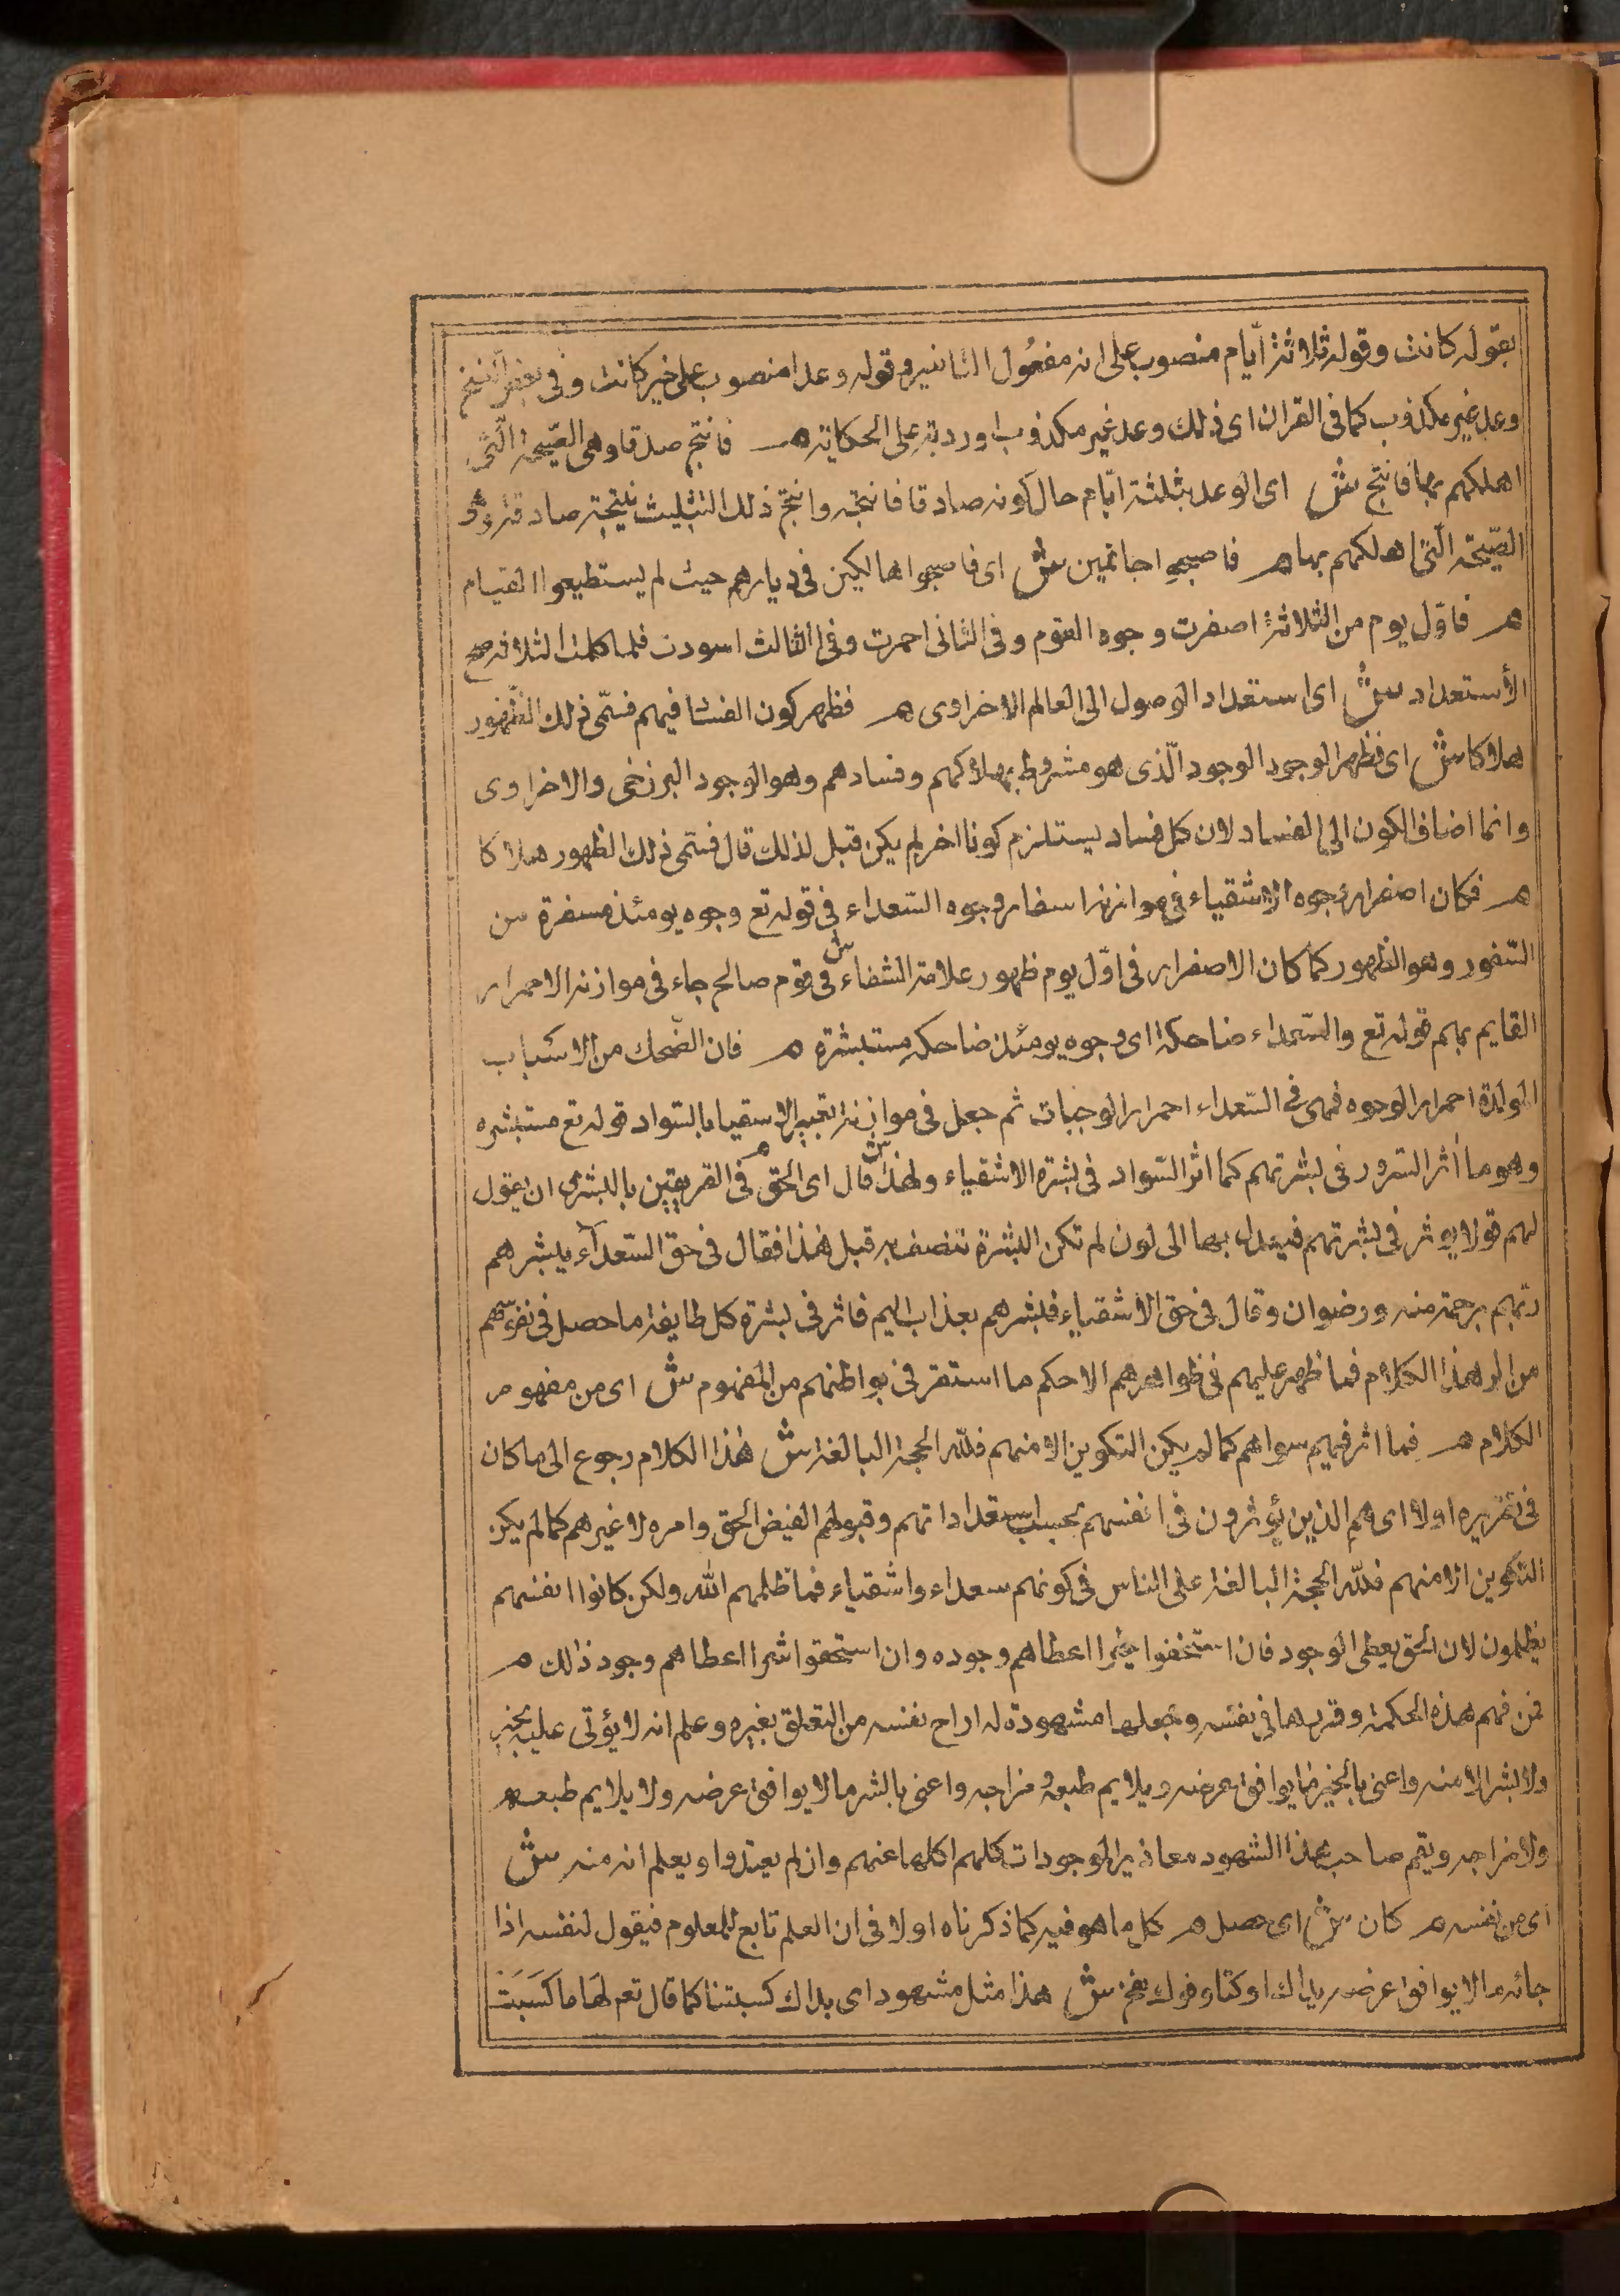 بقوله كانت وقوله ثلاثة ايّام منصوب على انه مفعُول التاخير وقوله وعدا منصوب على خبر كانت وفى بعض النسخ
وعد غير مكذوب كما فى القران اى ذلك وعد غير مكذوب اوردته على الحكاية هـ فانتج صدقا وهى الصّيحة الّتى
اهلكهم بها فانتج ش اى الوعد بثلثة ايّام حال كونه صادقا فانتجه وانتج ذلك التثليث نتيجة صادقة وهى
الصّيحة الّتى اهلكهم بها هـ فاصبحوا جاثمين ش اى فاصبحوا هالكين فى ديارهم حيث لم يستطيعوا القيام
هـ فاوّل يوم من الثلاثة اصفرت وجوه القوم وفى الثانى احمرت وفى الثالث اسودت فلما كملت الثلاثة صح
الأستعداد ش اى استعداد الوصول الى العالم الاخراوى هـ فظهر كون الفساد فيهم فسمّى ذلك الظهور
هلاكا ش اى فظهر الوجود الوجود الّذى هو مشروط بهلاكهم وفسادهم وهو الوجود البرزخى والاخراوى
وانما اضاف الكون الى الفساد لان كل فساد يستلزم كونا اخر لم يكن قبل لذلك قال فسمى ذلك الظهور هلاكا
هـ فكان اصفرار وجوه الاشقياء فى موازنة اسفار وجوه السّعداء فى قوله تع وجوه يومئذ مسفرة من
السّفور وهو الظهور كما كان الاصفرار فى اوّل يوم ظهور علامة الشقاء ش فى قوم صالح جاء فى موازنة الاحمرار
القايم بهم قوله تع والسّعداء ضاحكة اى وجوه يومئذ ضاحكة مستبشرة هـ فان الضّحك من الاسباب
المولدة احمرار الوجوه فهى فى السّعداء احمرار الوجنات ثم جعل فى موازنة تغيير الاشقياء بالسّواد قوله تع مستبشره
وهو ما أثر السّرور فى بشرتهم كما اثر السّواد فى بشرة الاشقياء ولهذا ش قال اى الحق هـ فى الفريقين بالبشرى ان يقول
لهم قولا يوثر فى بشرتهم فيعدل بها الى لون لم تكن البشرة تتصف به قبل هذا فقال فى حق السّعداء يبشرهم
ربّهم برحمة منه ورضوان وقال فى حق الأشقياء فبشرهم بعذاب اليم فاثر فى بشرة كل طايفة ما حصل فى نفوسهم
من اثر هذا الكلام فما ظهر عليهم فى ظواهرهم الا حكم ما استقر فى بواطنهم من المفهوم ش اى من مفهوم
الكلام هـ فما اثر فيهم سواهم كما لم يكن التكوين الا منهم فلله الحجة البالغة ش هذا الكلام رجوع الى ما كان
فى تقريره اولا اى هم الذين يؤثرون فى انفسهم بحسب استعداداتهم وقبولهم الفيض الحق وامره لا غيرهم كما لم يكن
التكوين الا منهم فللّه الحجة البالغة على الناس فى كونهم سعداء واشقياء فما ظلمهم الله ولكن كانوا انفسهم
يظلمون لان الحق يعطى الوجود فان استحقوا خيرا اعطاهم وجوده وان استحقوا شرا اعطاهم وجود ذلك هـ
فمن فهم هذه الحكمة وقررها فى نفسه وجعلها مشهودة له اراح نفسه من التعلق بغيره وعلم انه لا يؤتى عليه بخير
ولا بشر الا منه واعنى بالخير ما يوافق غرضه ويلايم طبعه ومزاجه واعنى بالشر ما لا يوافق غرضه ولا يلايم طبعه هـ
ولا مزاجه ويقيم صاحب هذا الشهود معاذير الموجودات كلهم اكلها عنهم وان لم يعتذروا ويعلم انه منه ش
اى من نفسه هـ كان ش اى حصل هـ كل ما هو فيه كما ذكرناه اولا فى ان العلم تابع للمعلوم فيقول لنفسه اذا
جائه ما لا يوافق غرضه يداك اوكتا وفوك نفخ ش هذا مثل مشهود اى يداك كسبتنا كما قال تعم لَهَا مَا كَسَبَتْ